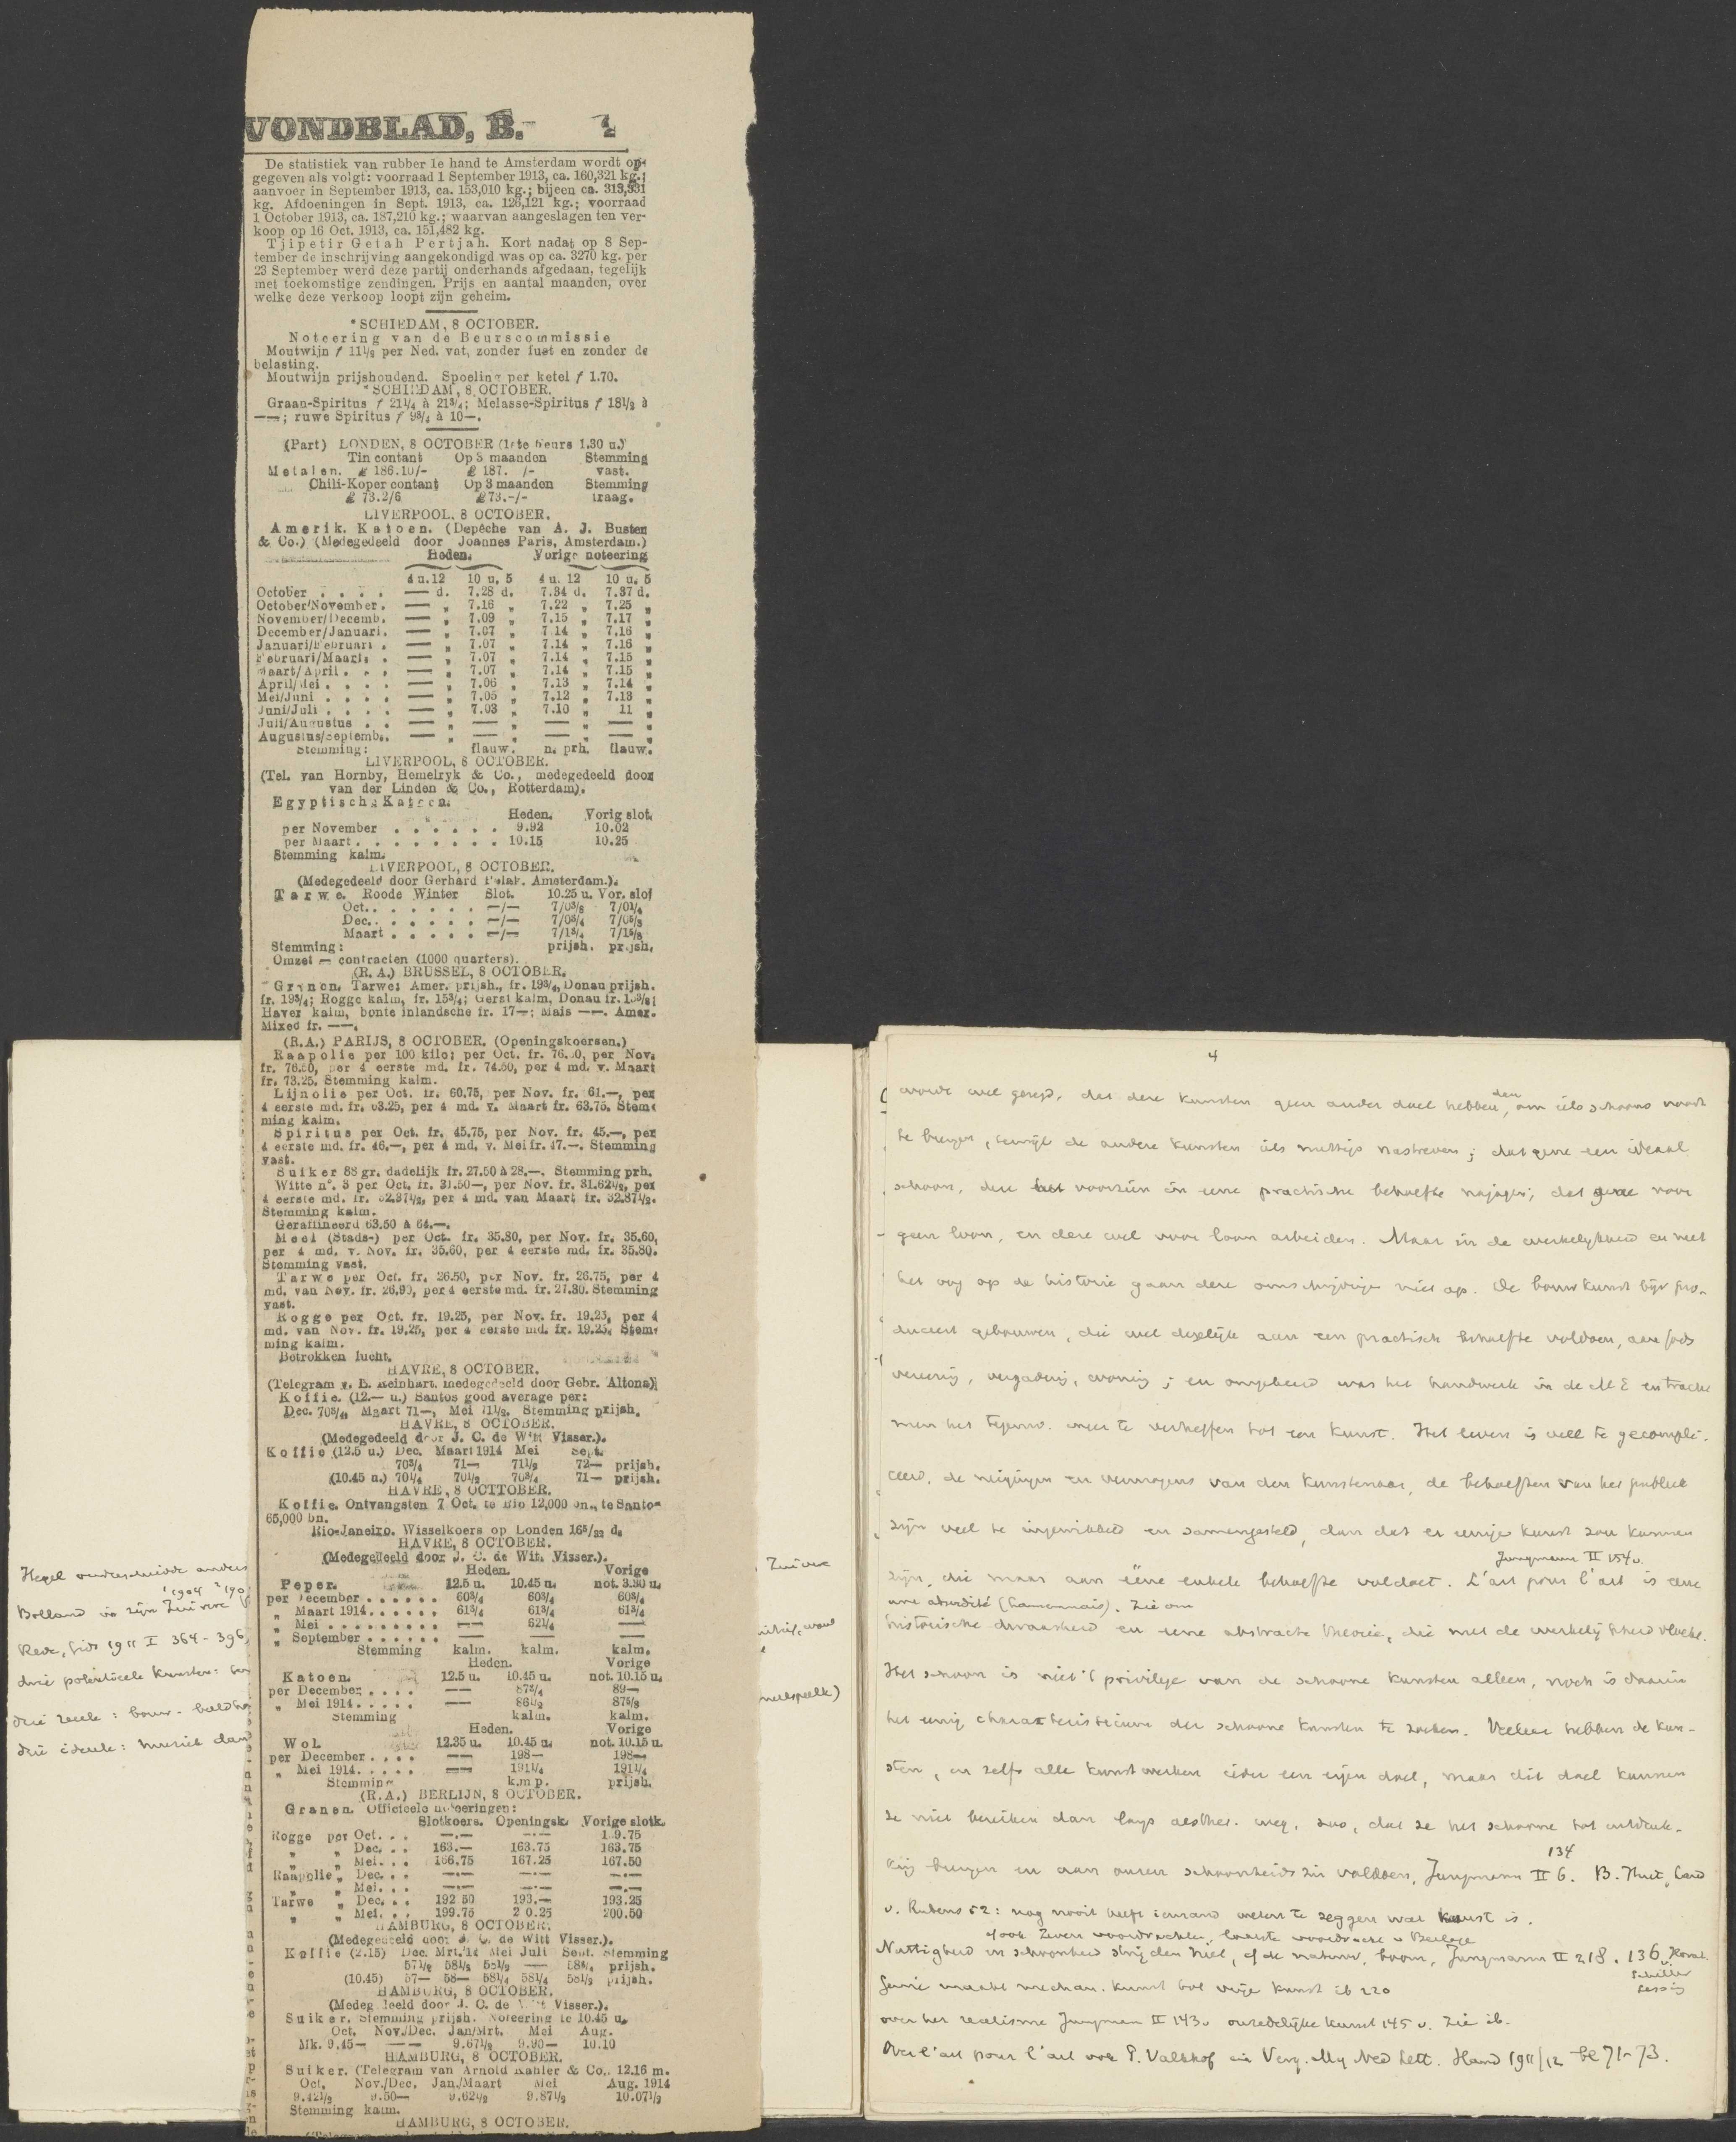 VONDBLAD, B. ½
De statistiek van rubber 1e hand te Amsterdam wordt op-
gegeven als volgt: voorraad 1 September 1913, ca. 160,321 kg.;
aanvoer in September 1913, ca. 153,010 kg.; bijeen ca. 313,331
kg. Afdoeningen in Sept. 1913, ca. 126,121 kg.; voorraad
1 October 1913, ca. 187,210 kg.; waarvan aangeslagen ten ver-
koop op 16 Oct. 1913, ca. 151,482 kg.
Tjipetir Getah Pertjah. Kort nadat op 8 Sep-
tember de inschrijving aangekondigd was op ca. 3270 kg. per
23 September werd deze partij onderhands afgedaan, tegelijk
met toekomstige zendingen. Prijs en aantal maanden, over
welke deze verkoop loopt zijn geheim.
*SCHIEDAM, 8 OCTOBER.
Noteering van de Beurscommissie
Moutwijn f 11½ per Ned. vat, zonder fust en zonder de
belasting.
Moutwijn prijshoudend. Spoeling per ketel f 1.70.
*SCHIEDAM, 8 OCTOBER.
Graan-Spiritus f 21¼ à 21¾; Melasse-Spiritus f 18½ à
——; ruwe Spiritus f 9¾ à 10—.
(Part) LONDEN, 8 OCTOBER (1ste beurs 1.30 u.)
Tin contant Op 3 maanden Stemming
Metalen. £ 186.10/- £ 187. /- vast.
Chili-Koper contant Op 3 maanden Stemming
£ 73.2/6 £ 73.-/- traag.
LIVERPOOL, 8 OCTOBER.
Amerik. Katoen. (Depêche van A. J. Buster
& Co.) (Medegedeeld door Joannes Paris, Amsterdam.)
Heden. Vorige noteering
4 u. 12 10 u. 5 4 u. 12 10 u. 5
October . . . . — d. 7.28 d. 7.34 d. 7.37 d.
October/November. — „ 7.16 „ 7.22 „ 7.25 „
November/Decemb. — „ 7.09 „ 7.15 „ 7.17 „
December/Januari. — „ 7.07 „ 7.14 „ 7.16 „
Januari/Februari . — „ 7.07 „ 7.14 „ 7.16 „
Februari/Maart. . — „ 7.07 „ 7.14 „ 7.15 „
Maart/April . . . — „ 7.07 „ 7.14 „ 7.15 „
April/Mei . . . . — „ 7.06 „ 7.13 „ 7.14 „
Mei/Juni . . . . — „ 7.05 „ 7.12 „ 7.13 „
Juni/Juli . . . . — „ 7.03 „ 7.10 „ 11 „
Juli/Augustus . . — „ — „ — „ — „
Augustus/Septemb.. — „ — „ — „ — „
Stemming: flauw. n. prh. flauw.
LIVERPOOL, 8 OCTOBER.
(Tel. van Hornby, Hemelryk & Co., medegedeeld door
van der Linden & Co., Rotterdam).
Egyptische Katoen.
Heden. Vorig slot.
per November . . . . . . 9.92 10.02
per Maart . . . . . . . . 10.15 10.25
Stemming kalm.
LIVERPOOL, 8 OCTOBER.
(Medegedeeld door Gerhard Polak. Amsterdam.).
Tarwe. Roode Winter Slot. 10.25 u. Vor. slot
Oct. . . . . . . —/— 7/0⅜ 7/0¼
Dec. . . . . . . —/— 7/0¾ 7/0⅝
Maart . . . . . —/— 7/1¾ 7/1⅝
Stemming: prijsh. prijsh.
Omzet — contracten (1000 quarters).
(R. A.) BRUSSEL, 8 OCTOBER.
Granen. Tarwe: Amer. prijsh., fr. 19¾, Donau prijsh.
fr. 19¾; Rogge kalm, fr. 15¾; Gerst kalm, Donau fr.
Haver kalm, bonte inlandsche fr. 17—; Mais ——. Amer.
Mixed fr. ——.
(R. A.) PARIJS, 8 OCTOBER. (Openingskoersen.)
Raapolie per 100 kilo: per Oct. fr. per Nov.
fr. 76.50, per 4 eerste md. fr. 74.50, per 4 md. v. Maart
fr. 73.25. Stemming kalm.
Lijnolie per Oct. fr. 60.75, per Nov. fr. 61.—, per
4 eerste md. fr. 63.25, per 4 md. v. Maart fr. 63.75. Stem-
ming kalm.
Spiritus per Oct. fr. 45.75, per Nov. fr. 45.—, per
4 eerste md. fr. 46.—, per 4 md. v. Mei fr. 47.—. Stemming
vast.
Suiker 88 gr. dadelijk fr. 27.50 à 28.—. Stemming prh.
Witte n°. 3 per Oct. fr. 31.50—, per Nov. fr. 31.62½, per
4 eerste md. fr. 32.37½, per 4 md. van Maart fr. 32.87½.
Stemming kalm.
Geraffineerd 63.50 à 64.—.
Meel (Stads-) per Oct. fr. 35.80, per Nov. fr. 35.60,
per 4 md. v. Nov. fr. 35.60, per 4 eerste md. fr. 35.80.
Stemming vast.
Tarwe per Oct. fr. 26.50, per Nov. fr. 26.75, per 4
md. van Nov. fr. 26.90, per 4 eerste md. fr. 27.30. Stemming
vast.
Rogge per Oct. fr. 19.25, per Nov. fr. 19.25, per 4
md. van Nov. fr. 19.25, per 4 eerste md. fr. 19.25. Stem-
ming kalm.
Betrokken lucht.
HAVRE, 8 OCTOBER.
(Telegram v. E. Reinhart, medegedeeld door Gebr. Altona)
Koffie. (12.— u.) Santos good average per:
Dec. 70¾, Maart 71—, Mei 71½. Stemming prijsh.
HAVRE, 8 OCTOBER.
(Medegedeeld door J. C. de Witt Visser.).
Koffie (12.5 u.) Dec. Maart 1914 Mei Sept.
70¾ 71— 71½ 72— prijsh.
(10.45 u.) 70¼ 70½ 70¾ 71— prijsh.
HAVRE, 8 OCTTOBER.
Koffie. Ontvangsten 7 Oct. te Rio 12,000 bn., te Santos
65,000 bn.
Rio-Janeiro. Wisselkoers op Londen 16⁵/₃₂ d.
HAVRE, 8 OCTOBER.
(Medegedeeld door J. C. de Witt Visser.).
Heden. Vorige
Peper. 12.5 u. 10.45 u. not. 3.30 u.
per December . . . . . . 60¾ 60¾ 60¾
„ Maart 1914. . . . . . 61¾ 61¾ 61¾
„ Mei . . . . . . . . . —— 62¼ ——
„ September . . . . . . —— —— ——
Stemming kalm. kalm. kalm.
Heden. Vorige
Katoen. 12.5 u. 10.45 u. not. 10.15 u.
per December. . . . . —— 87¾ 89—
„ Mei 1914. . . . . —— 86½ 87⅝
Stemming kalm. kalm.
Heden. Vorige
Wol. 12.35 u. 10.45 u. not. 10.15 u.
per December . . . . —— 198— 198—
„ Mei 1914. . . . . —— 191¼ 191¼
Stemming prijsh.
(R. A.) BERLIJN, 8 OCTOBER.
Granen. Officieele noteeringen:
Slotkoers. Openingsk. Vorige slotk.
Rogge per Oct. . . —.— —.—
„ „ Dec. . . 163.— 163.75 163.75
„ „ Mei. . . 166.75 167.25 167.50
Raapolie „ Dec. . . —.— —.— —.—
„ Mei. . . —.— —.— —.—
Tarwe „ Dec. . . 192 50 193.— 193.25
„ „ Mei. . . 199.75 2 0.25 200.50
HAMBURG, 8 OCTOBER.
(Medegedeeld door J. C. de Witt Visser.).
Koffie (2.15) Dec. Mrt.'14 Mei Juli Sept. Stemming
57½ 58½ 58½ —— 58¾ prijsh.
(10.45) 57— 58— 58¼ 58¼ 58½ prijsh.
HAMBURG, 8 OCTOBER.
(Medeg deeld door J. C. de Witt Visser.).
Suiker. Stemming prijsh. Noteering te 10.45 u.
Oct. Nov./Dec. Jan/Mrt. Mei Aug.
Mk. 9.45— —— 9.67½ 9.90— 10.10
HAMBURG, 8 OCTOBER.
Suiker. (Telegram van Arnold Kahler & Co., 12.16 m.
Oct. Nov./Dec. Jan./Maart Mei Aug. 1914
9.42½ 9.50— 9.62½ 9.87½ 10.07½
Stemming kalm.
HAMBURG, 8 OCTOBER.
Hegel onderscheidde anders
1904 190
Bolland in zijn Zuivere
Rede, Gids 1911 I 364-396,
drie potentieele kunsten:
drie reele: bouw- beeldho
drie ideele: muziek dan
Zuivere
4
worde wel gezegd, dat deze kunsten geen ander doel hebben, dan om iets schoons voort
te brengen, terwijl de andere kunsten iets nuttigs nastreven; dat gene een ideaal
schoon, deze voorzien in eene practische behoefte najagen; dat gene voor
geen loon, en deze wel voor loon arbeiden. Maar in de werkelijkheid en met
het oog op de historie gaan deze omschrijvingen niet op. De bouwkunst bijv pro-
duceert gebouwen, die wel degelijk aan een practische behoefte voldoen, aan gods
vereering, vergadering, woning; en omgekeerd was het handwerk in de ME en tracht
men het tegenw. weer te verheffen tot een kunst. Het leven is veel te gecompli-
ceerd, de neigingen en vermogens van den kunstenaar, de behoeften van het publiek
zijn veel te ingewikkeld en samengesteld, dan dat er eenige kunst zou kunnen
Jungmann II 154v.
zijn, die maar aan ééne enkele behoefte voldoet. L'art pour l'art is eene
une absurdité (Lamennais). Zie om
historische dwaasheid en eene abstracte theorie, die met de werkelijkheid vloekt.
Het schoon is niet 't privilege van de schoone kunsten alleen, noch is daarin
het eenig characteristicum der schoone kunsten te zoeken. Veeleer hebben de kun-
sten, en zelfs alle kunstwerken ieder een eigen doel, maar dit doel kunnen
ze niet bereiken dan langs aesthet. weg, dus, dat ze het schoone tot ontdek-
134
king brengen en aan onzen schoonheidszin voldoen, Jungmann II 6. B. Huet, Land
v. Rubens 52: nog nooit heeft iemand weten te zeggen wat kunst is.
Nuttigheid en schoonheid strijden niet, cf de natuur, boom, Jungmann II 218. 136 v. Horat.
Schiller
Lessing
Genie maakt mechan. kunst tot vrije kunst ib 220
over het realisme Jungman II 143v onzedelijke kunst 145v. Zie ib.
Over l'art pour l'art ook P. Valkhof in Verg. My Ned Lett. Hand 1911/12 bl 71-73.